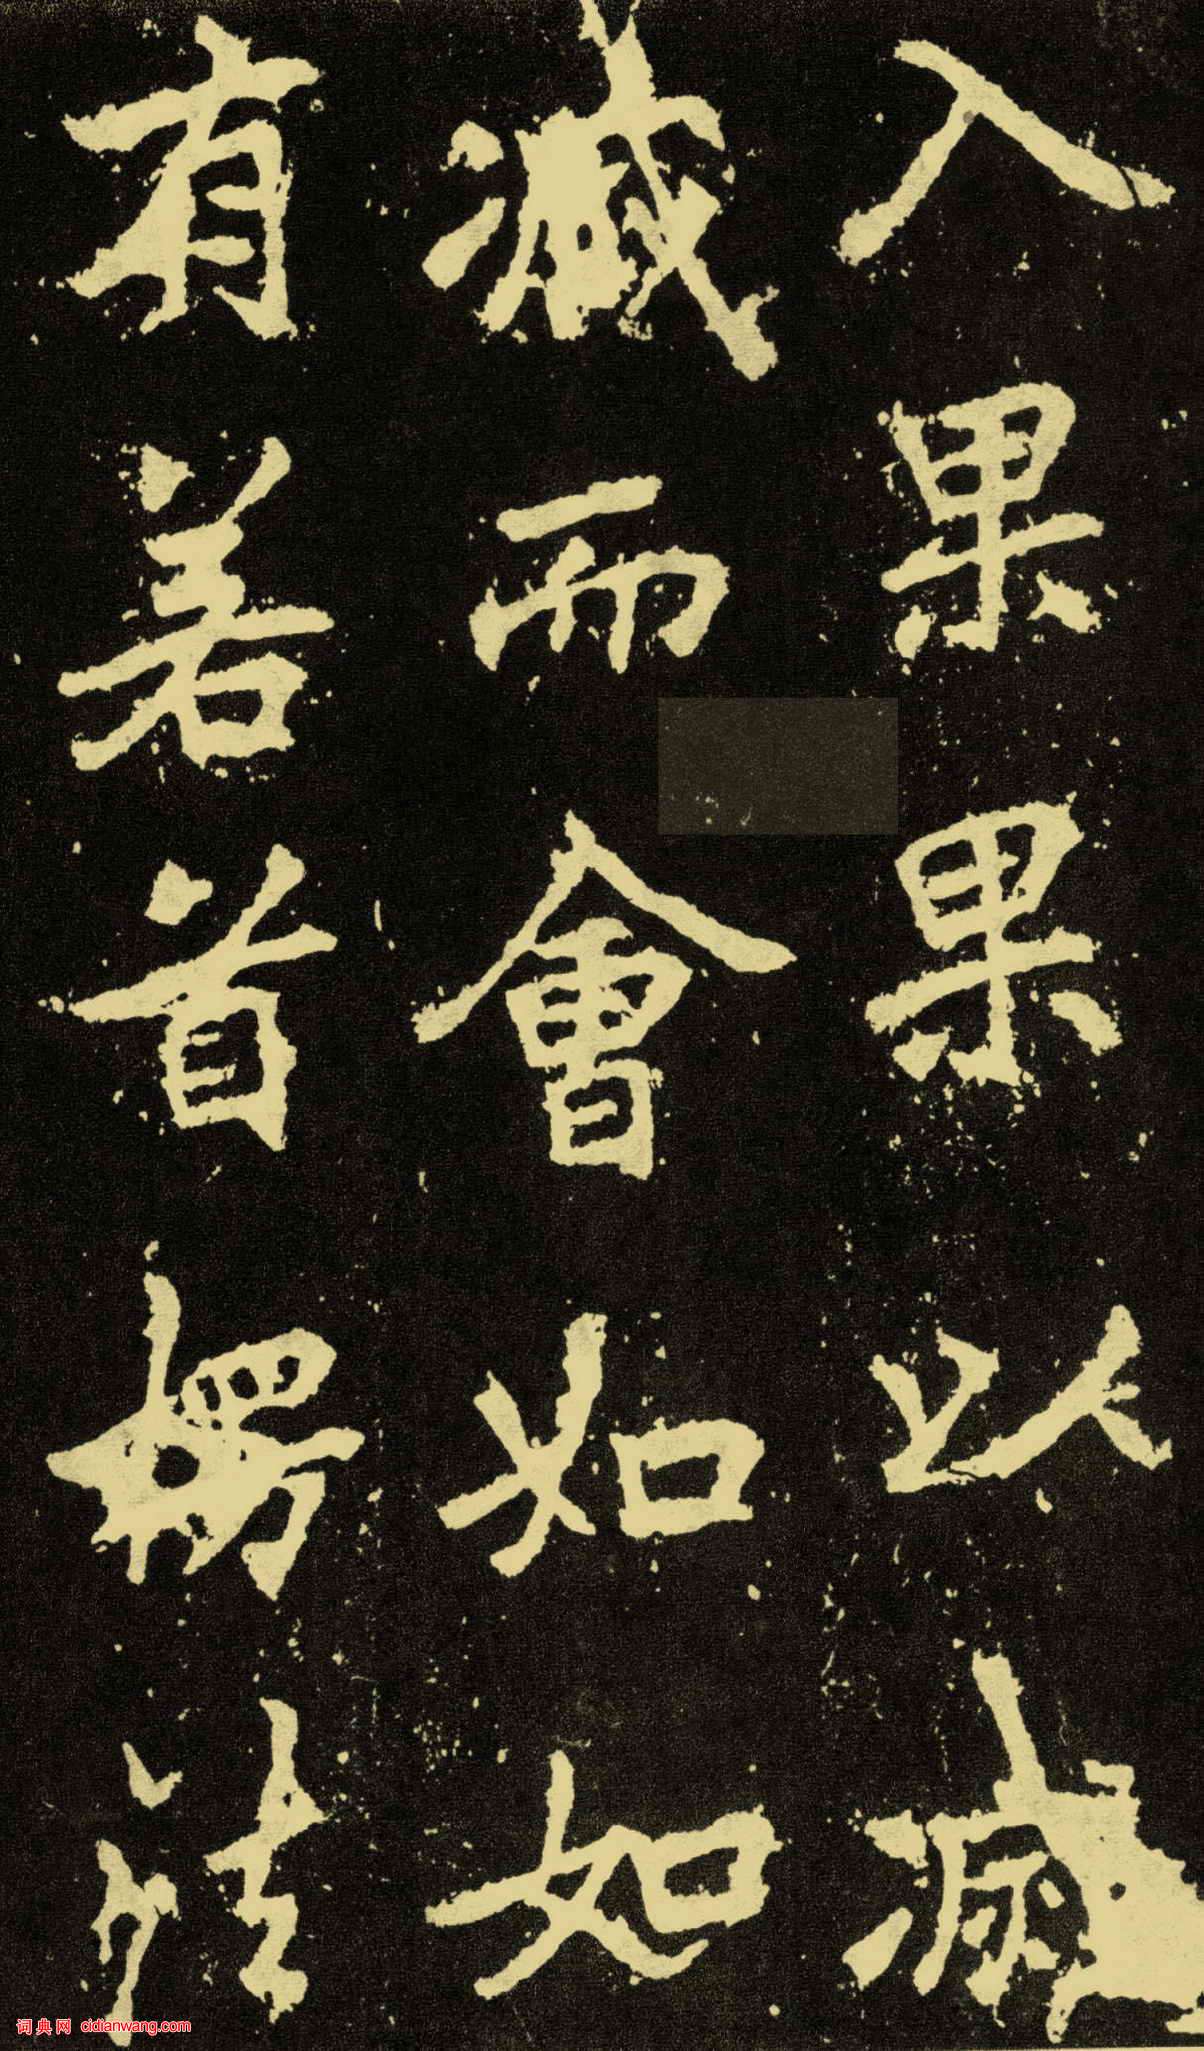 入果果以滅
滅而會如如
有若首楞法
词典网 cidianwang.com